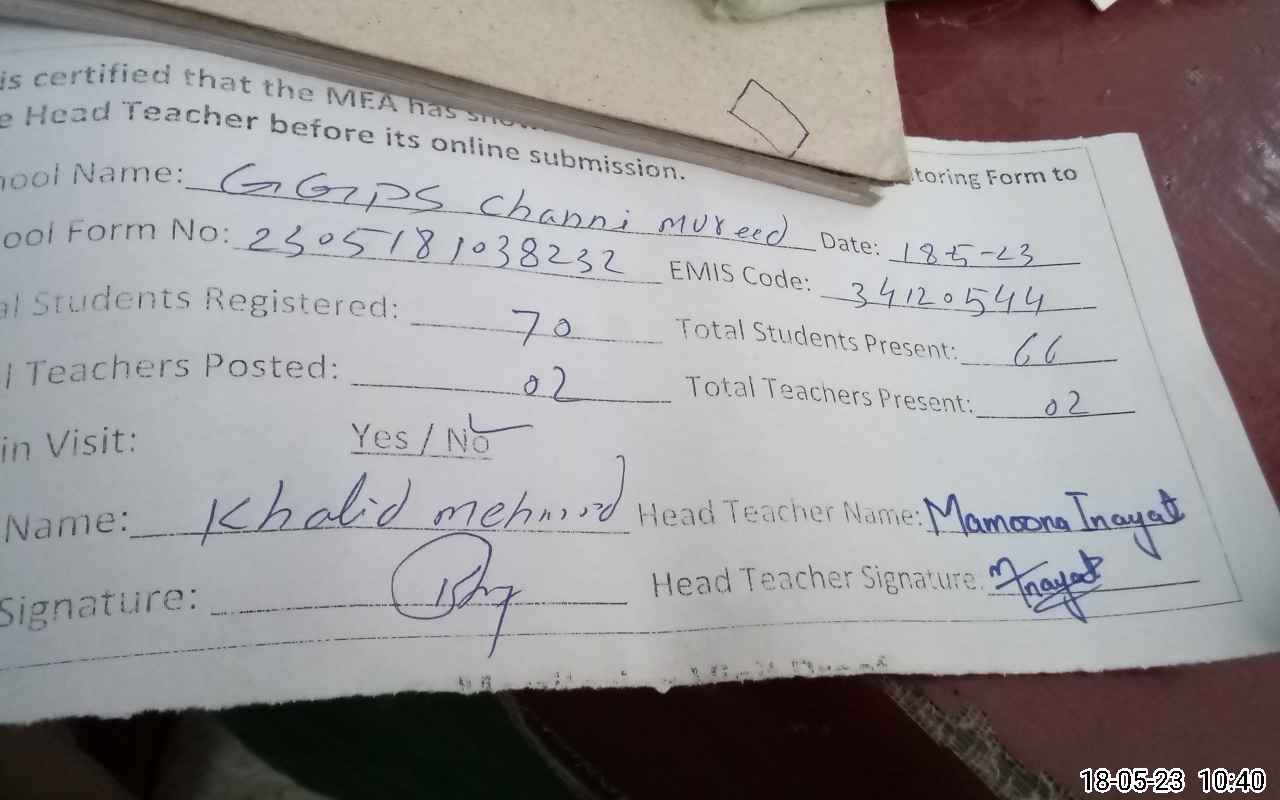 is certified that the MEA has
e Head Teacher before its online submission.
toring Form to
hool Name: GGPS Channi mureed Date: 18-5-23
ool Form No: 2305181038232 EMIS Code: 34120544
al Students Registered: 70 Total Students Present: 66
l Teachers Posted: 02 Total Teachers Present: 02
in Visit: Yes / No
Name: Khalid mehmood Head Teacher Name: Mamoona Inayat
Signature: Head Teacher Signature: MInayat
18-05-23 10:40